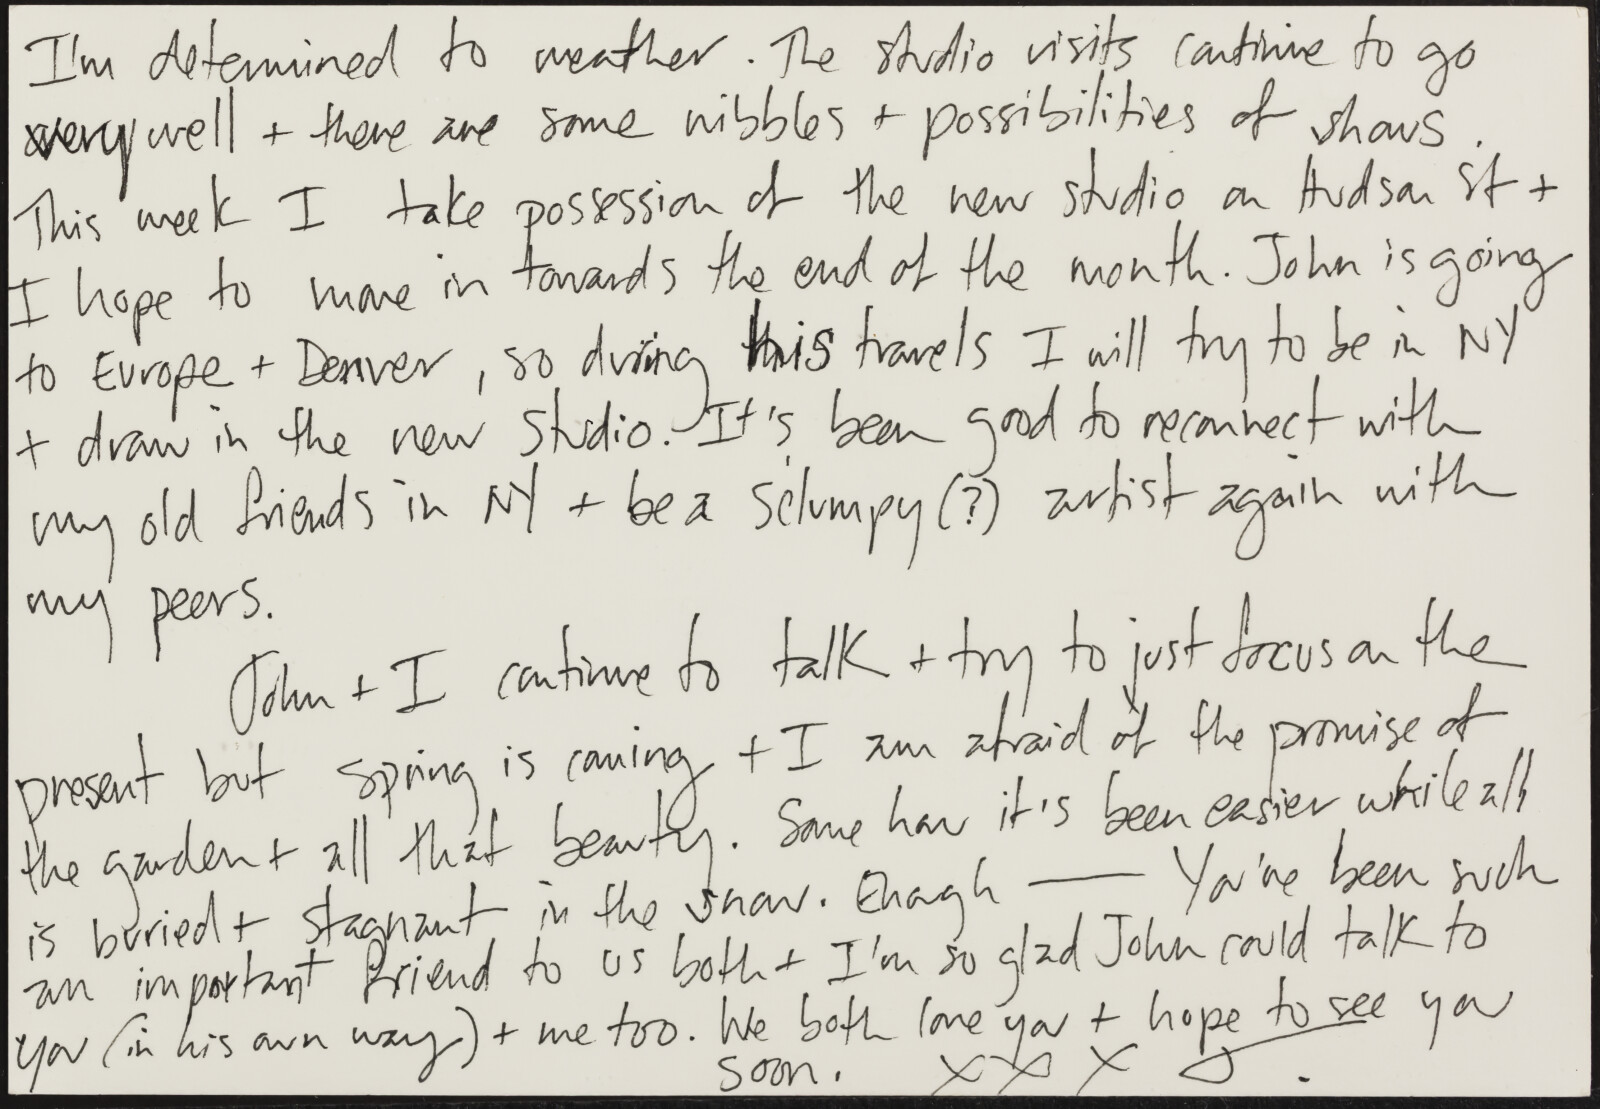 I'm determined to weather. The studio visits continue to go
very well + there are some nibbles + possibilities of shows.
This week I take possession of the new studio on Hudson St +
I hope to move in towards the end of the month. John is going
to Europe + Denver, so during his travels I will try to be in NY
+ draw in the new studio. It's been good to reconnect with
my old friends in NY + be a sclumpy (?) artist again with
my peers.
John + I continue to talk + try to just focus on the
present but spring is coming + I am afraid of the promise of
the garden + all that beauty. Some how it's been easier while all
is buried + stagnant in the snow. Enough — You've been such
an important friend to us both + I'm so glad John could talk to
you (in his own way) + me too. We both love you + hope to see you
soon. XXX J.